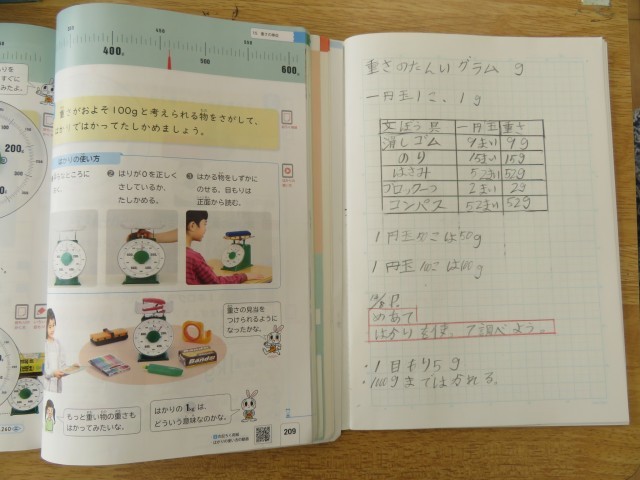 400g
500
600g
15 重さの単位
重さがおよそ100gと考えられる物をさがして、
はかりではかってたしかめましょう。
はかりの使い方
② はりが0を正しく
さしているか、
たしかめる。
③ はかる物をしずかに
のせる。目もりは
正面から読む。
重さの見当を
つけられるように
なったかな。
もっと重い物の重さも
はかってみたいな。
はかりの1kgは、
どういう意味なのかな。
209
重さのたんい グラム g
一円玉1こ、1g
文ぼう具 一円玉 重さ
消しゴム 9まい 9g
のり 15まい 15g
はさみ 52まい 52g
ブロック一つ 2まい 2g
コンパス 52まい 52g
1円玉50こは50g
1円玉100こは100g
めあて
はかりを使って調べよう。
・1目もり5g